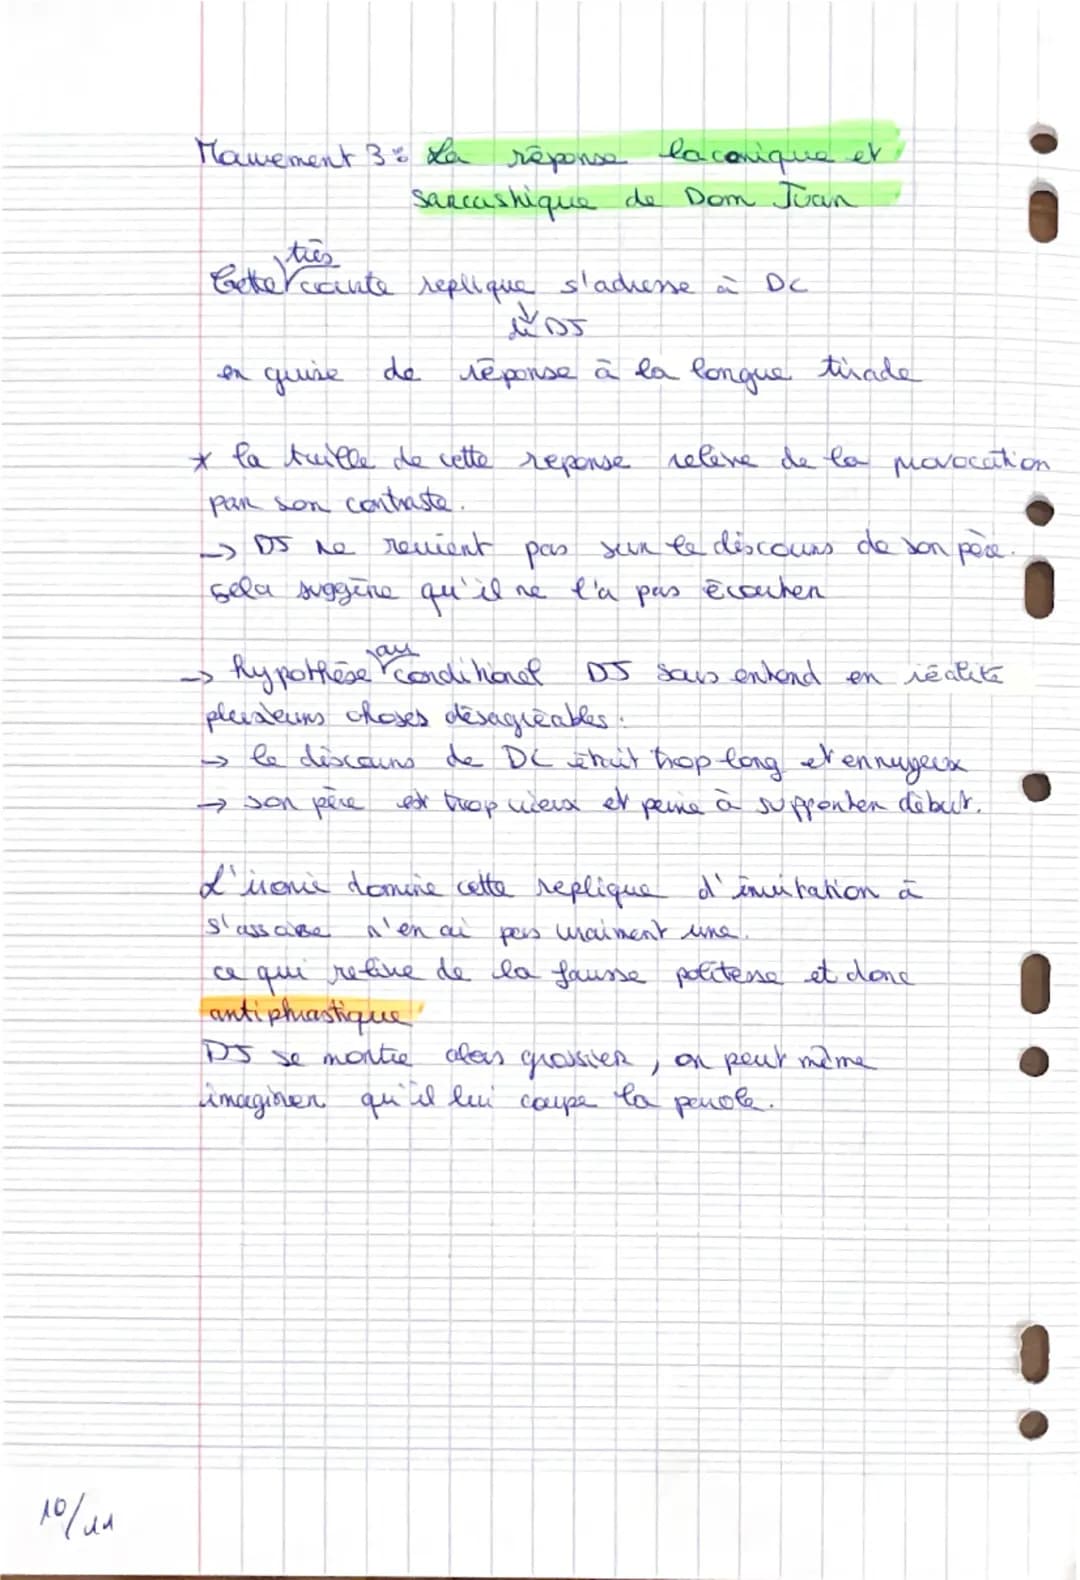 Mouvement 3 : La réponse laconique et
sarcastique de Dom Juan
très
Cette courte replique s'adresse à DC
de DJ
en guise de réponse à la longue tirade
* la taille de cette reponse relève de la provocation
par son contraste.
→ DJ ne revient pas sur le discours de son père.
cela suggère qu'il ne l'a pas écouter
au
→ hypothèse conditionel DJ sous entend en réalité
plusieurs choses désagréables :
→ le discours de DC était trop long et ennuyeux
→ son père est trop vieux et peine à supporter debut.
L'ironie domine cette replique d'invitation à
s'assoise n'en ai pas vraiment une.
ce qui relève de la fausse politesse et donc
antiphrastique
DJ se montre alors grossier, on peut même
imaginer qu'il lui coupe la parole.
10/11